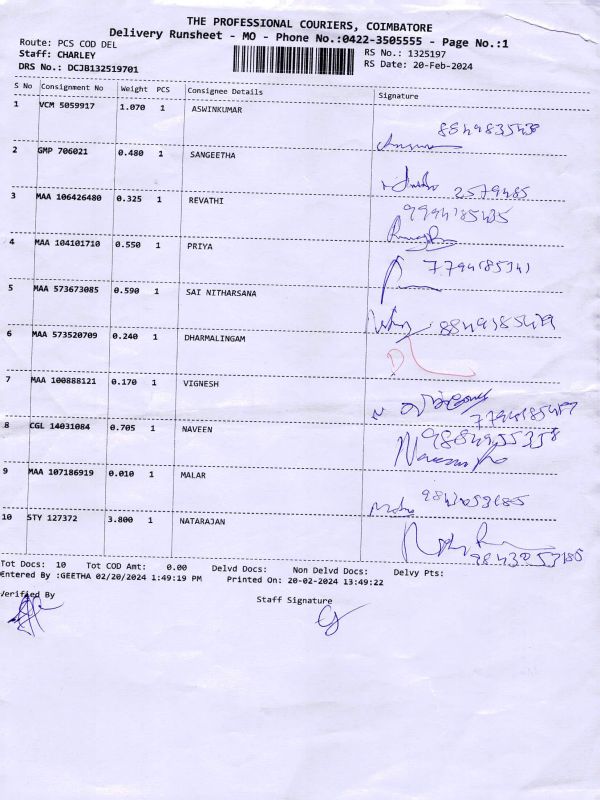 THE PROFESSIONAL COURIERS, COIMBATORE
Delivery Runsheet - MO - Phone No.:0422-3505555 - Page No.:1
Route: PCS COD DEL
RS No.: 1325197
Staff: CHARLEY
RS Date: 20-Feb-2024
DRS No.: DCJB132519701
S No Consignment No Weight PCS Consignee Details Signature
1 VCM 5059917 1.070 1 ASWINKUMAR
2 GMP 706021 0.480 1 SANGEETHA
2579485
3 MAA 106426480 0.325 1 REVATHI
4 MAA 104101710 0.550 1 PRIYA
5 MAA 573673085 0.590 1 SAI NITHARSANA
6 MAA 573520709 0.240 1 DHARMALINGAM
7 MAA 100888121 0.170 1 VIGNESH
8 CGL 14031084 0.705 1 NAVEEN
9884955358
Naveen
9 MAA 107186919 0.010 1 MALAR
10 STY 127372 3.800 1 NATARAJAN
9843053185
Tot Docs: 10 Tot COD Amt: 0.00 Delvd Docs: Non Delvd Docs: Delvy Pts:
Entered By :GEETHA 02/20/2024 1:49:19 PM Printed On: 20-02-2024 13:49:22
Verified By
Staff Signature